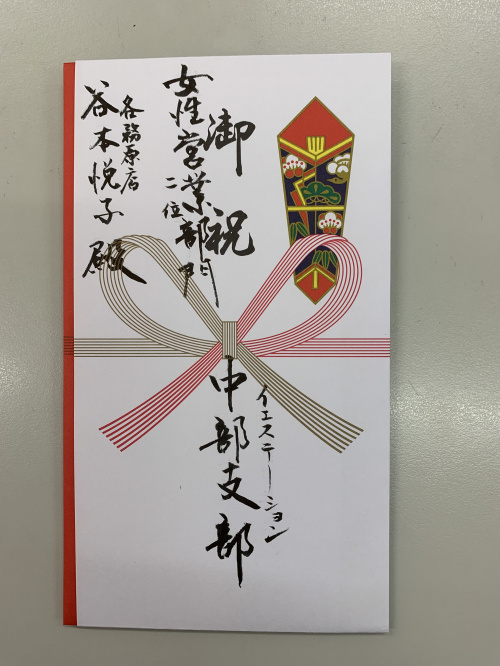 御祝
女性営業部門
二位
各務原店
谷本悦子殿
イエステーション
中部支部